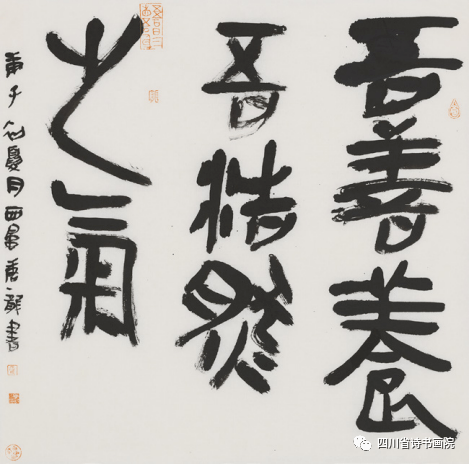 吾善養
吾浩然
之氣
庚子慶月西蜀書
四川省诗书画院